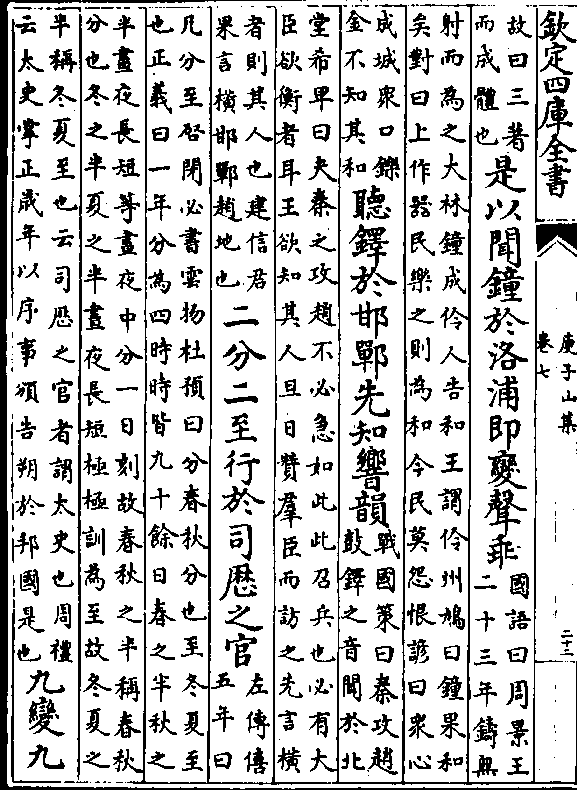 欽定四庫全書
庾子山集
卷七
二十二
故曰三著
而成體也
是以聞鐘於洛浦即變聲乖
國語曰周景王
二十三年鑄無
射而為之大林鐘成伶人告和王謂伶州鳩曰鐘果和
矣對曰上作器民樂之則為和今民莫怨恨諺曰衆心
成城衆口鑠
金不知其和
聽鐸於邯鄲先知響韻
戰國策曰秦攻趙
鼓鐸之音聞於北
堂希卑曰夫秦之攻趙不必急如此此召兵也必有大
臣欲衡者耳王欲知其人旦日贊羣臣而訪之先言橫
者則其人也建信君
果言橫邯鄲趙地也
二分二至行於司歴之官
左傳僖
五年曰
凡分至啓閉必書雲物杜預曰分春秋分也至冬夏至
也正義曰一年分為四時時皆九十餘日春之半秋之
半晝夜長短等晝夜中分一日刻故春秋之半稱春秋
分也冬之半夏之半晝夜長短極極訓為至故冬夏之
半稱冬夏至也云司歴之官者謂太史也周禮
云太史掌正歲年以序事頒告朔於邦國是也
九變九